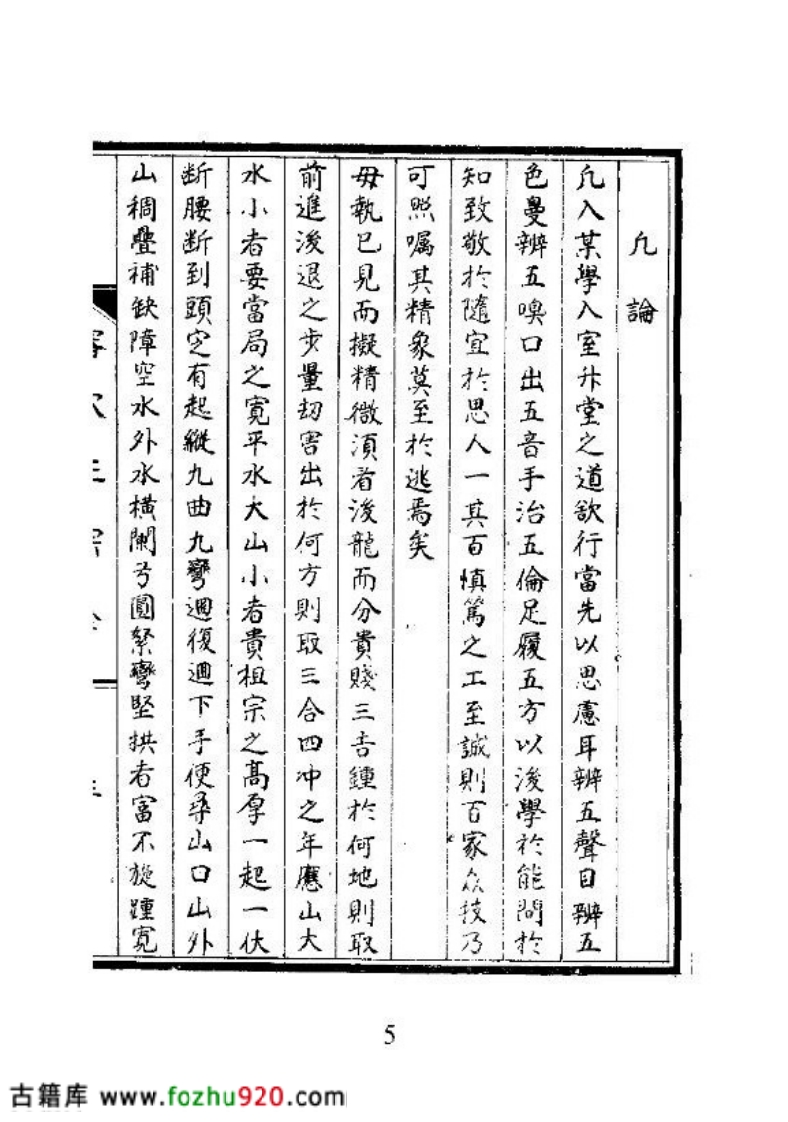 凡論
凡入某學入室升堂之道欲行當先以思慮耳辨五聲目辨五
色曼辨五嗅口出五音手治五倫足履五方以浚學於能問於
知致敬於隨宜於思人一其百慎篤之工至誠則百家众技乃
可照嘱其精象莫至於逃焉矣
毋執已見而擬精微湏看浚龍而分貴賤三吉鍾於何地則取
前進浚退之步量刧害出於何方則取三合四冲之年應山大
水小者要當局之寛平水大山小者貴祖宗之髙厚一起一伏
断腰断到頭定有起縱九曲九彎迴復迴下手便尋山口山外
山稠疊補缺障空水外水橫闌弓圓繄彎堅拱者富不旋踵寛
5
古籍库 www.fozhu920.com